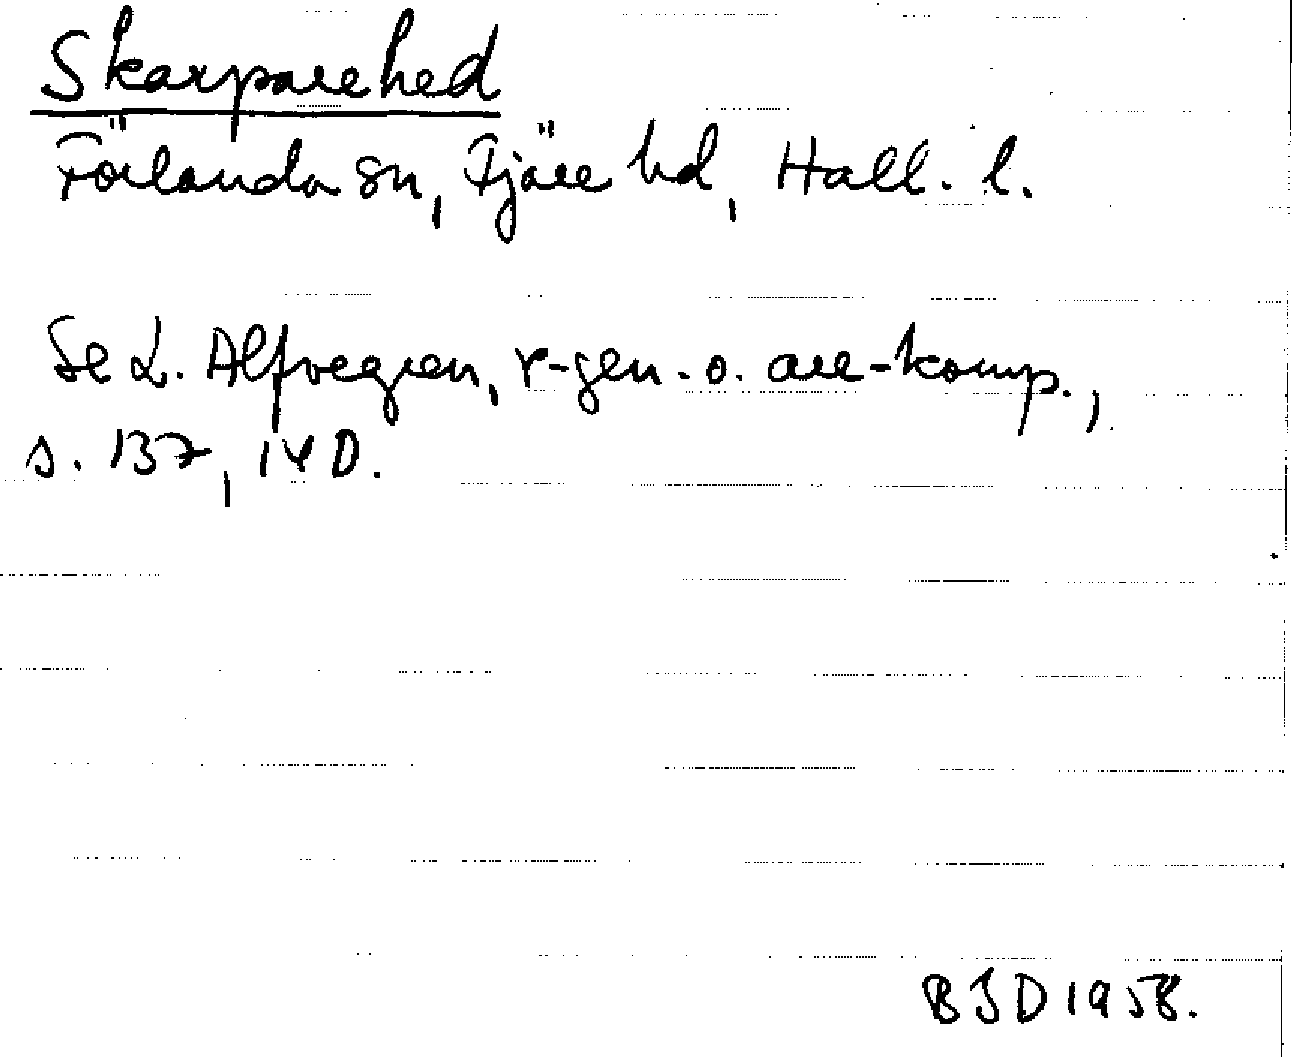 Skarparehed
Förlanda sn, Fjäre hd, Hall. l.
Se L. Alfvegren, r-gen. o. are-komp.,
s. 137, 140.
BJD 1958.